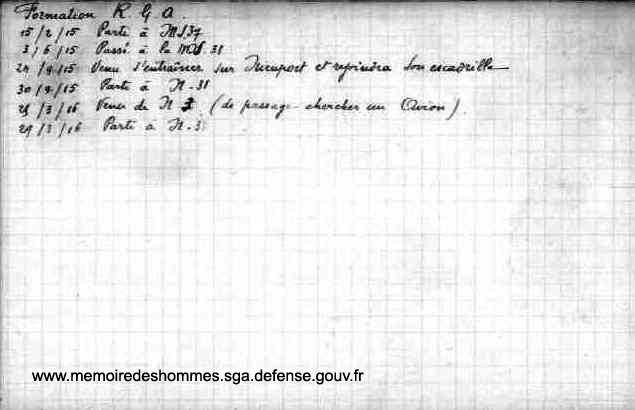 Formation R. G. A.
15/2/15 Parti à MS37
3/6/15 Passé à la MS 31
24/9/15 Venu s'entraîner sur Nieuport et rejoindra son escadrille
30/9/15 Parti à N-31
21/3/16 Venu de N 3 (de passage chercher un Avion)
29/3/16 Parti à N-3
www.memoiredeshommes.sga.defense.gouv.fr